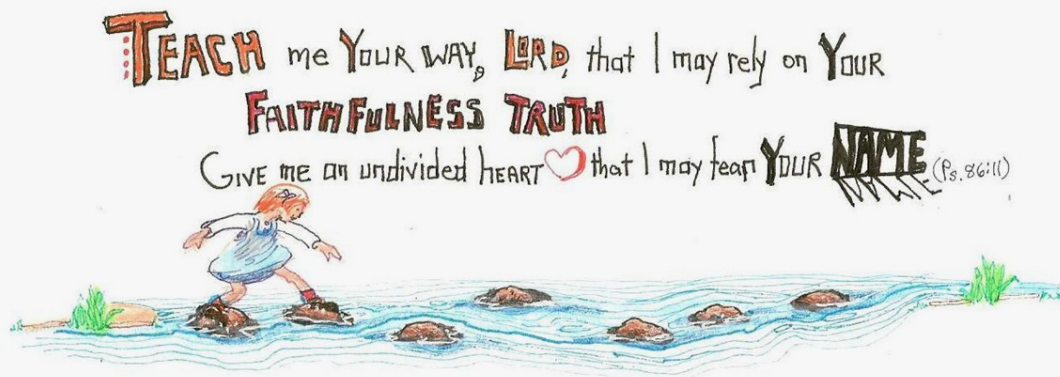 TEACH me YOUR WAY, LORD, that I may rely on YOUR
FAITHFULNESS TRUTH
GIVE me an undivided HEART that I may fear YOUR NAME (Ps. 86:11)